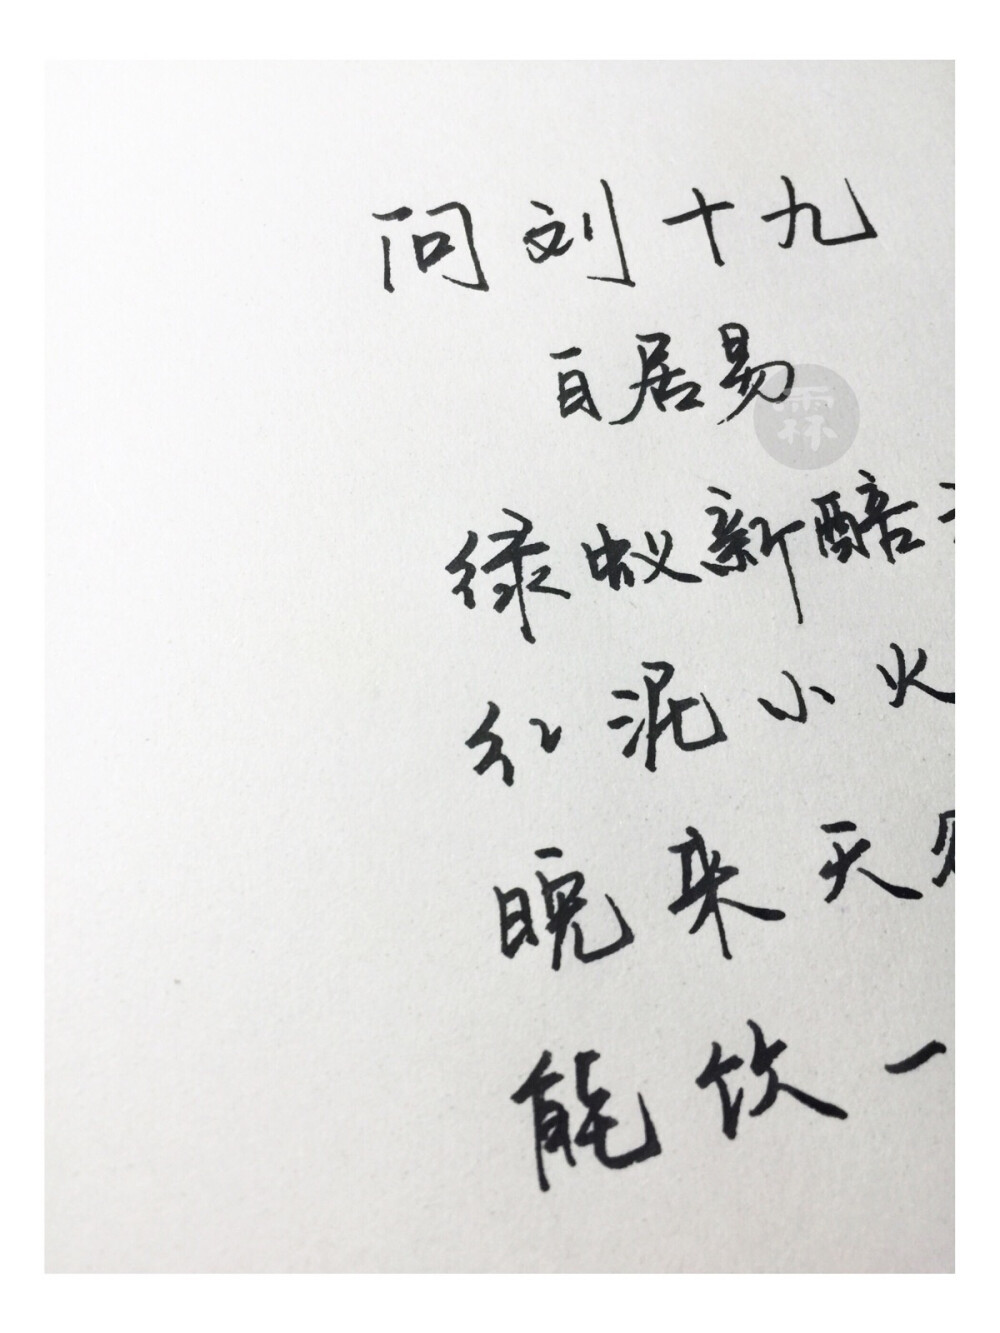 问刘十九
白居易
霖
绿蚁新醅
红泥小火
晚来天
能饮一